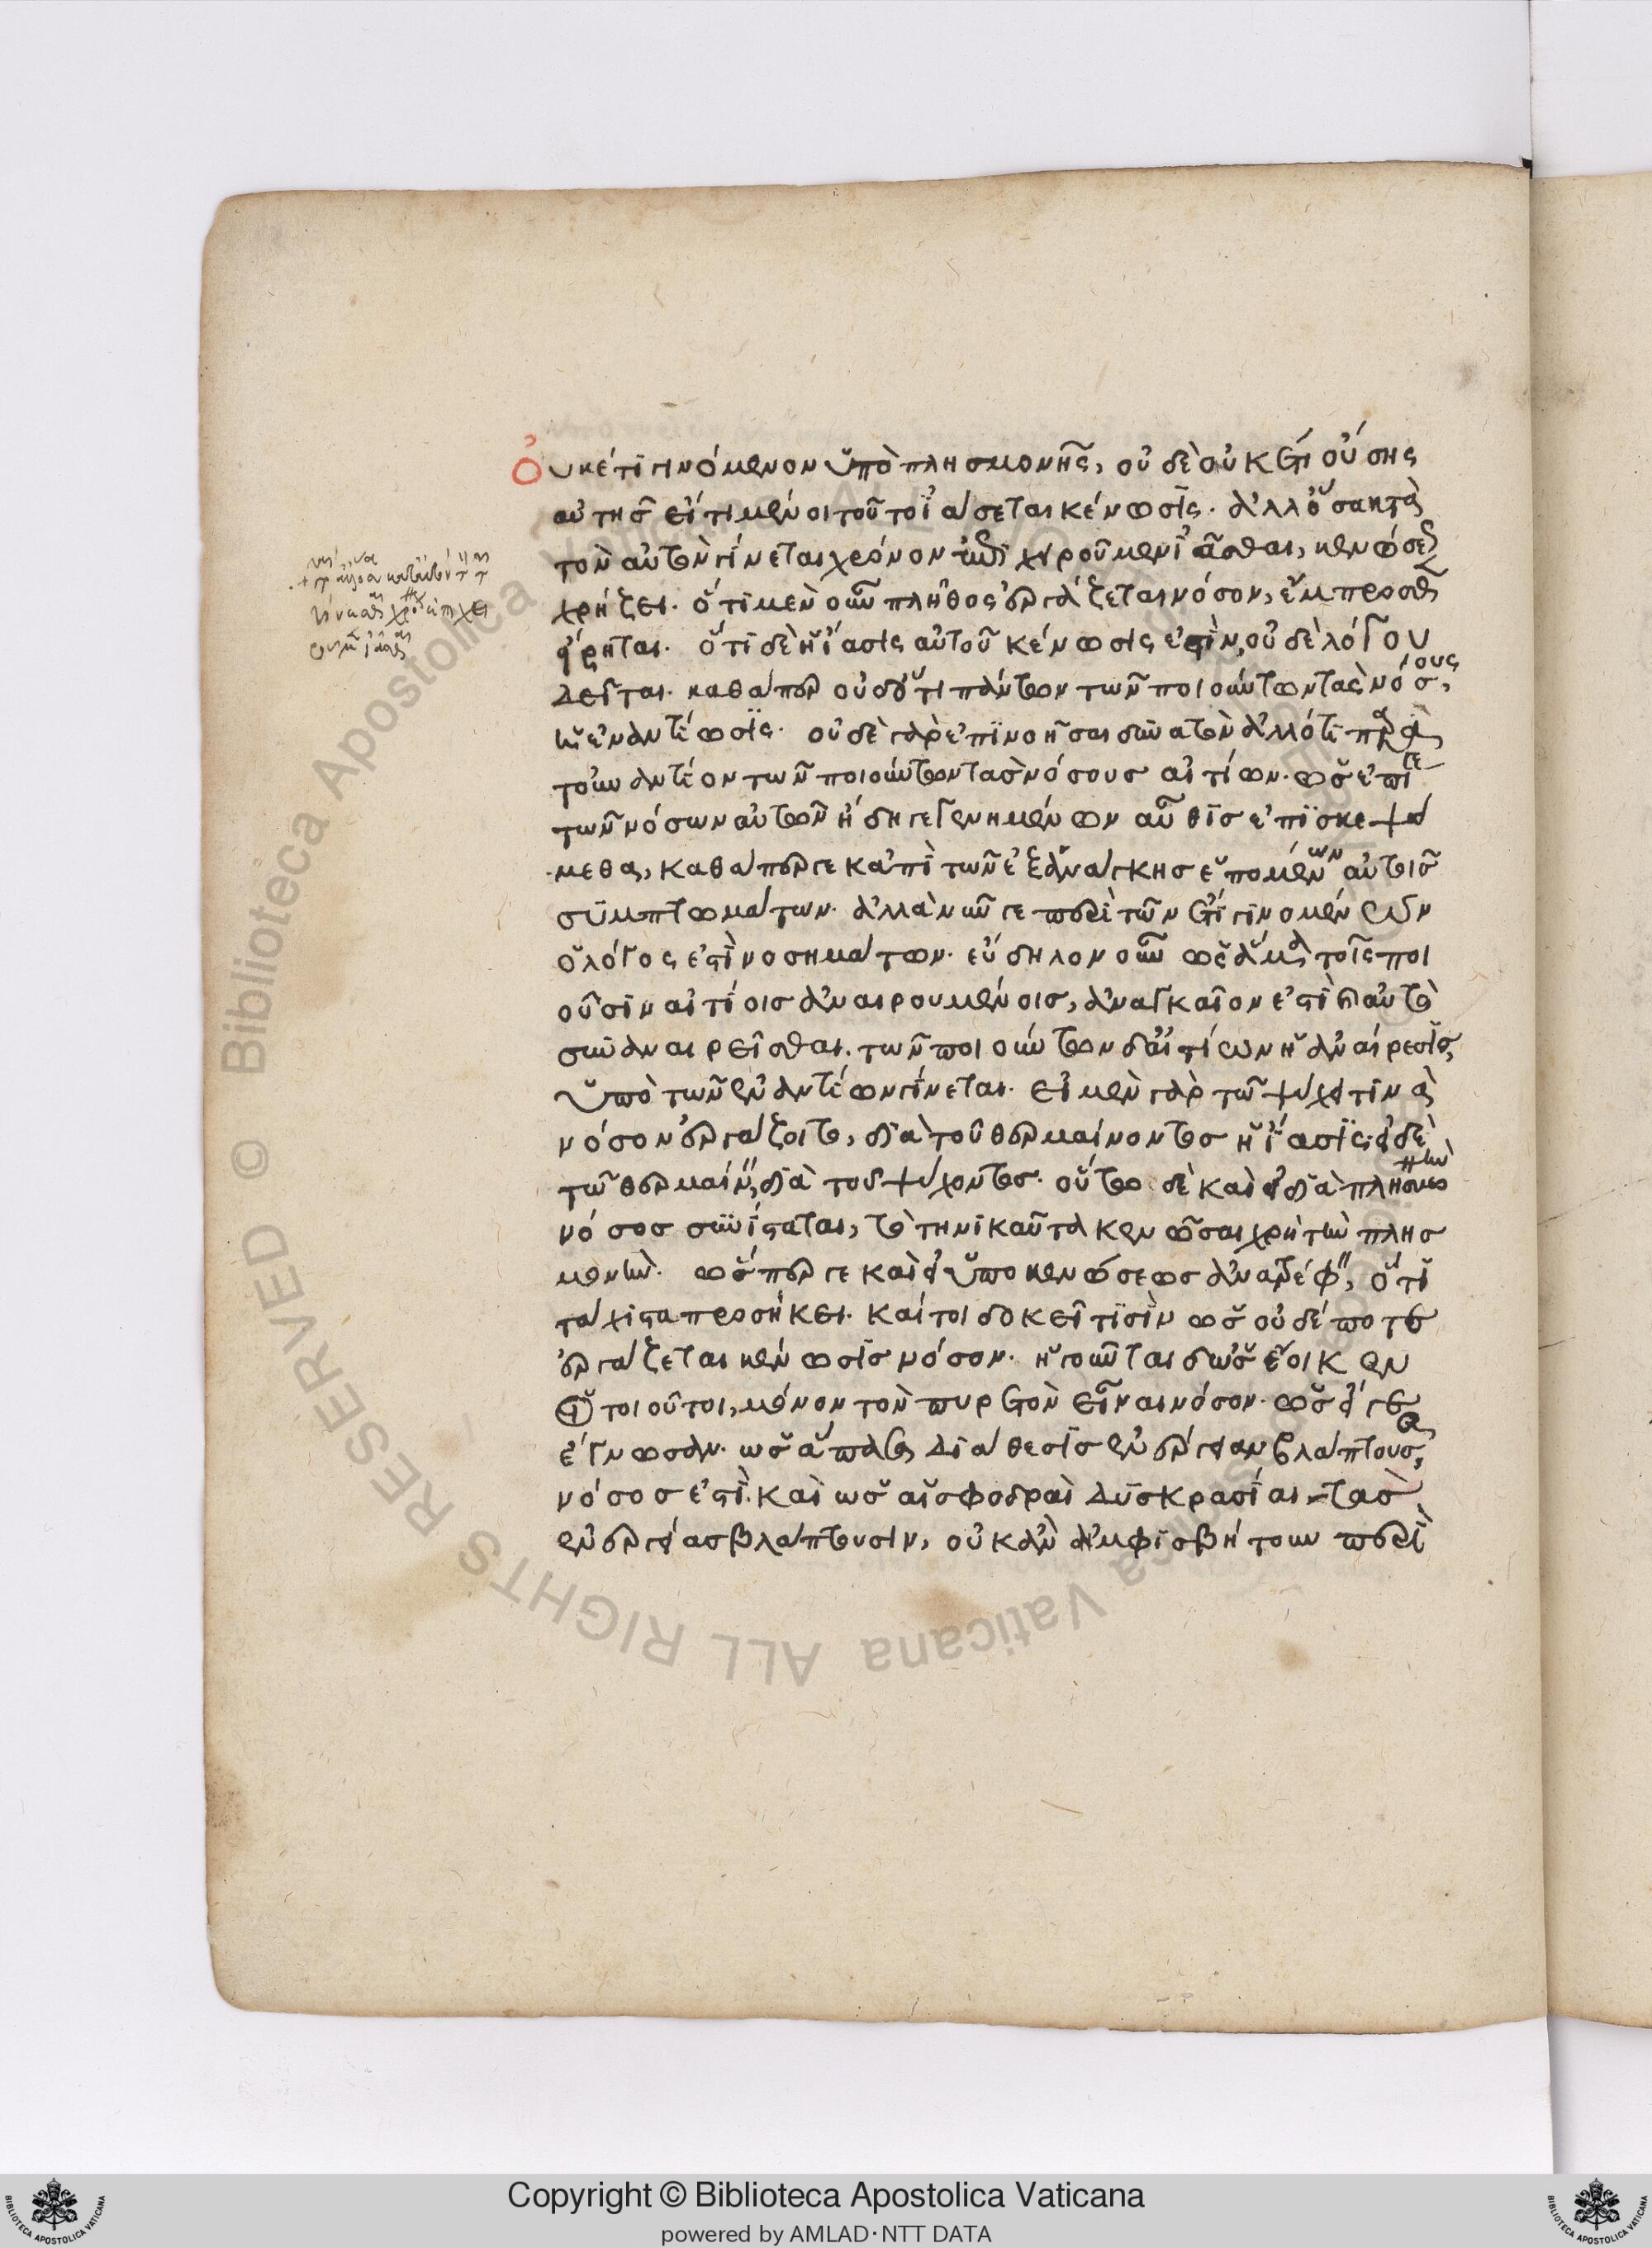 Οὐκέτι γινόμενον ὑπὸ πλησμονῆς, οὐδὲ οὐκέτι οὔσης
αὐτῆς εἴ τι μένοι τοῦτο ἰάσεται κένωσις. ἀλλ' ὅσα κατὰ
τὸν αὐτὸν γίνεται χρόνον ᾧ ἐπιχειροῦμεν ἰᾶσθαι, κενώσεως
χρήζει. ὅτι μὲν οὖν πλῆθος ἐργάζεται νόσον, ἔμπροσθεν
εἴρηται. ὅτι δὲ ἡ ἴασις αὐτοῦ κένωσίς ἐστιν, οὐδὲ λόγου
δεῖται. καθάπερ οὐδ' ὅτι πάντων τῶν ποιούντων τὰς νόσους,
ἡ ἐναντίωσις. οὐδὲ γὰρ ἐπινοῆσαι δυνατὸν ἄλλό τι παρὰ
τοὐναντίον τῶν ποιούντων τὰς νόσους αἰτίων. ὡς ἐπί γε
τῶν νόσων αὐτῶν ἤδη γεγενημένων αὖθις ἐπισκεψό
μεθα, καθάπερ γε κἀπὶ τῶν ἐξ ἀνάγκης ἑπομένων αὐτοῖς
συμπτωμάτων. ἀλλὰ νῦν γε περὶ τῶν ἔτι γινομένων
ὁ λόγος ἐστὶ νοσημάτων. εὔδηλον οὖν ὡς ἅμα τοῖς ποι
οῦσιν αἰτίοις ἀναιρουμένοις, ἀναγκαῖον ἐστὶ καὶ αὐτὰ
συναναιρεῖσθαι. τῶν ποιούντων δ' αἰτίων ἡ ἀναίρεσις,
ὑπὸ τῶν ἐναντίων γίνεται. εἰ μὲν γὰρ τῷ ψύχειν τινὰ
νόσον ἐργάζοιτο, διὰ τοῦ θερμαίνοντος ἡ ἴασις· εἰ δὲ
τῷ θερμαίνειν, διὰ τοῦ ψύχοντος. οὕτω δὲ καὶ εἰ διὰ πλησμονὴν
νόσος συνίσταται, τὸ τηνικαῦτα κενῶσαι χρὴ τὴν πλησ
μονήν. ὥσπερ γε καὶ εἰ ὑπὸ κενώσεως ἀνατρέφειν, ὅτι
τάχιστα προσήκει. καίτοι δοκεῖ τισὶν ὡς οὐδέποτε
ἐργάζεται κένωσις νόσον. ἡγοῦνται δ' ὡς ἔοικεν
οἱ τοιοῦτοι, μόνον τὸν πυρετὸν εἶναι νόσον. ὡς εἴ γε
ἔγνωσαν. ὡς ἅπασα διάθεσις ἐνέργειαν βλάπτουσα,
νόσος ἐστί. καὶ ὡς αἱ σφοδραὶ δυσκρασίαι τὰς
ἐνεργείας βλάπτουσιν, οὐκ ἂν ἠμφισβήτουν περὶ
Copyright © Biblioteca Apostolica Vaticana
powered by AMLAD·NTT DATA